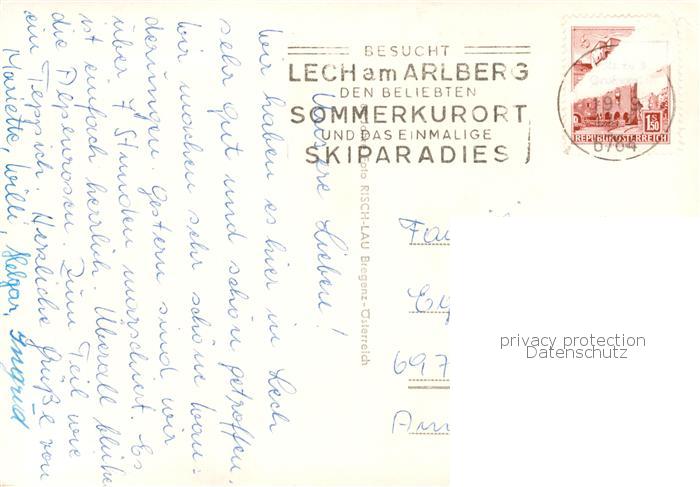 BESUCHT
LECH am ARLBERG
DEN BELIEBTEN
SOMMERKURORT
UND DAS EINMALIGE
SKIPARADIES
1.50
REPUBLIK ÖSTERREICH
6764
Foto RISCH-LAU Bregenz-Österreich
Unsere Lieben!
Wir haben es hier in Lech
sehr gut und schön getroffen.
Wir machen sehr schöne Wan-
derungen. Gestern sind wir
über 7 Stunden marschiert. Es
ist einfach herrlich. Überall blühen
die Alpenrosen. Zum Teil wie
ein Teppich. Herzliche Grüße von
Marietta, Willi, Helgar, Ingrid
Fa
697
Am
privacy protection
Datenschutz